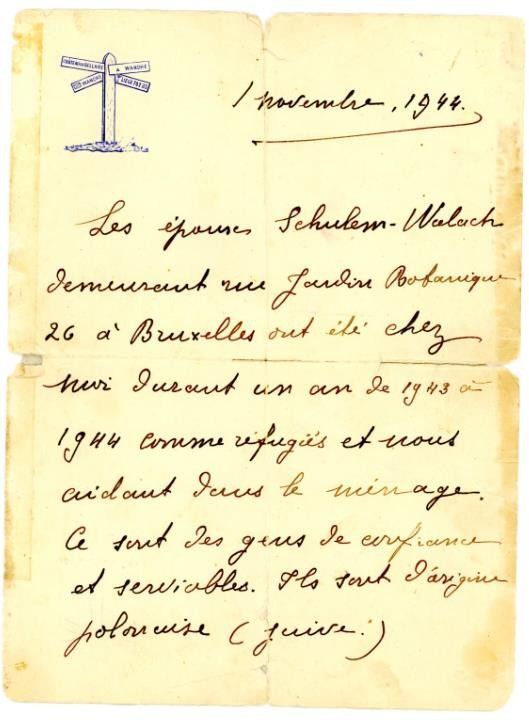 A WANDRE
1 novembre, 1944.
Les épouses Schulem-Walach
demeurant rue Jardin Botanique
26 à Bruxelles ont été chez
moi durant un an de 1943 à
1944 comme réfugiés et nous
aidant dans le ménage.
Ce sont des gens de confiance
et serviables. Ils sont d'origine
polonaise (juive.)